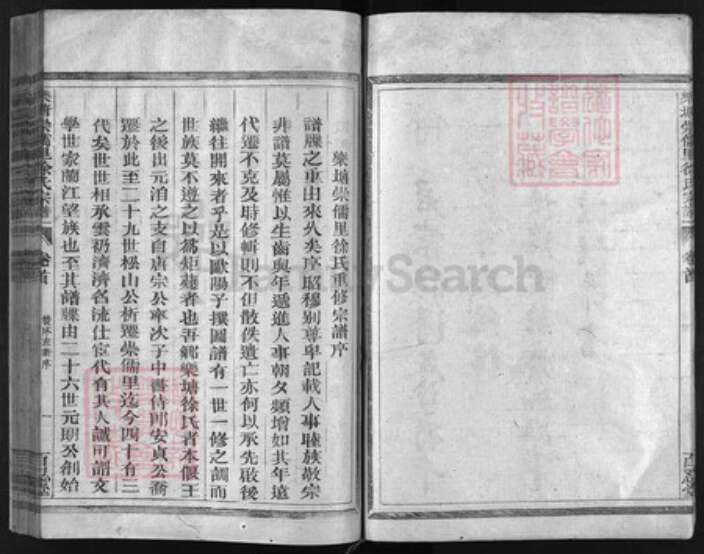 樂塘崇儒里徐氏重修宗譜序
譜牒之重由來久矣序昭穆别尊卑記載人事睦族敬宗
非譜莫屬惟以生齒與年遞進人事朝夕頻增如其年遠
代遷不克及時修輯則不但散佚遺亡亦何以承先啟後
繼往開來者乎是以歐陽子撰圖譜有一世一修之調而
世族莫不遵之以爲矩矱者也吾鄉樂塘徐氏者本偃王
之後出元洎之支自唐宗公率次子中書侍郎安貞公喬
遷於此至二十九世松山公析遷崇儒里迄今四十有三
代矣世世相承雲礽濟濟名流仕宦代有其人誠可謂文
學世家蘭江望族也至其譜牒由二十六世元明公創始
樂塘崇儒里徐氏宗譜
卷首
一
百忍堂
樂塘崇儒里徐氏宗譜
卷首
FamilySearch